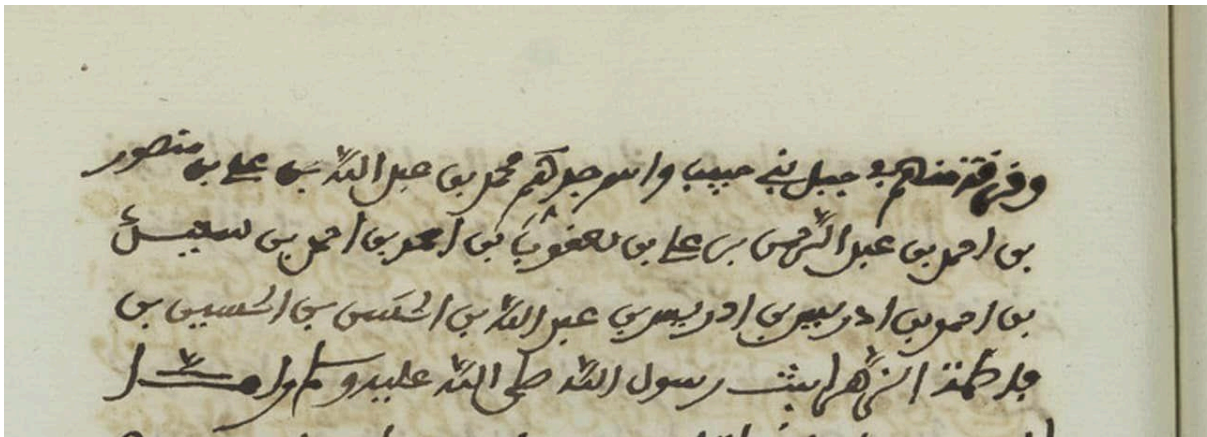 وفرقة منهم في جبل بني حبيب واسم جدهم محمد بن عبد الله بن علي بن منصور
بن احمد بن عبد الرحمن بن علي بن يعقوب بن احمد بن احمد بن سعيد
بن احمد بن ادريس بن ادريس بن عبد الله بن الحسن بن الحسين بن
فاطمة الزهرا بنت رسول الله صلى الله عليه وسلم